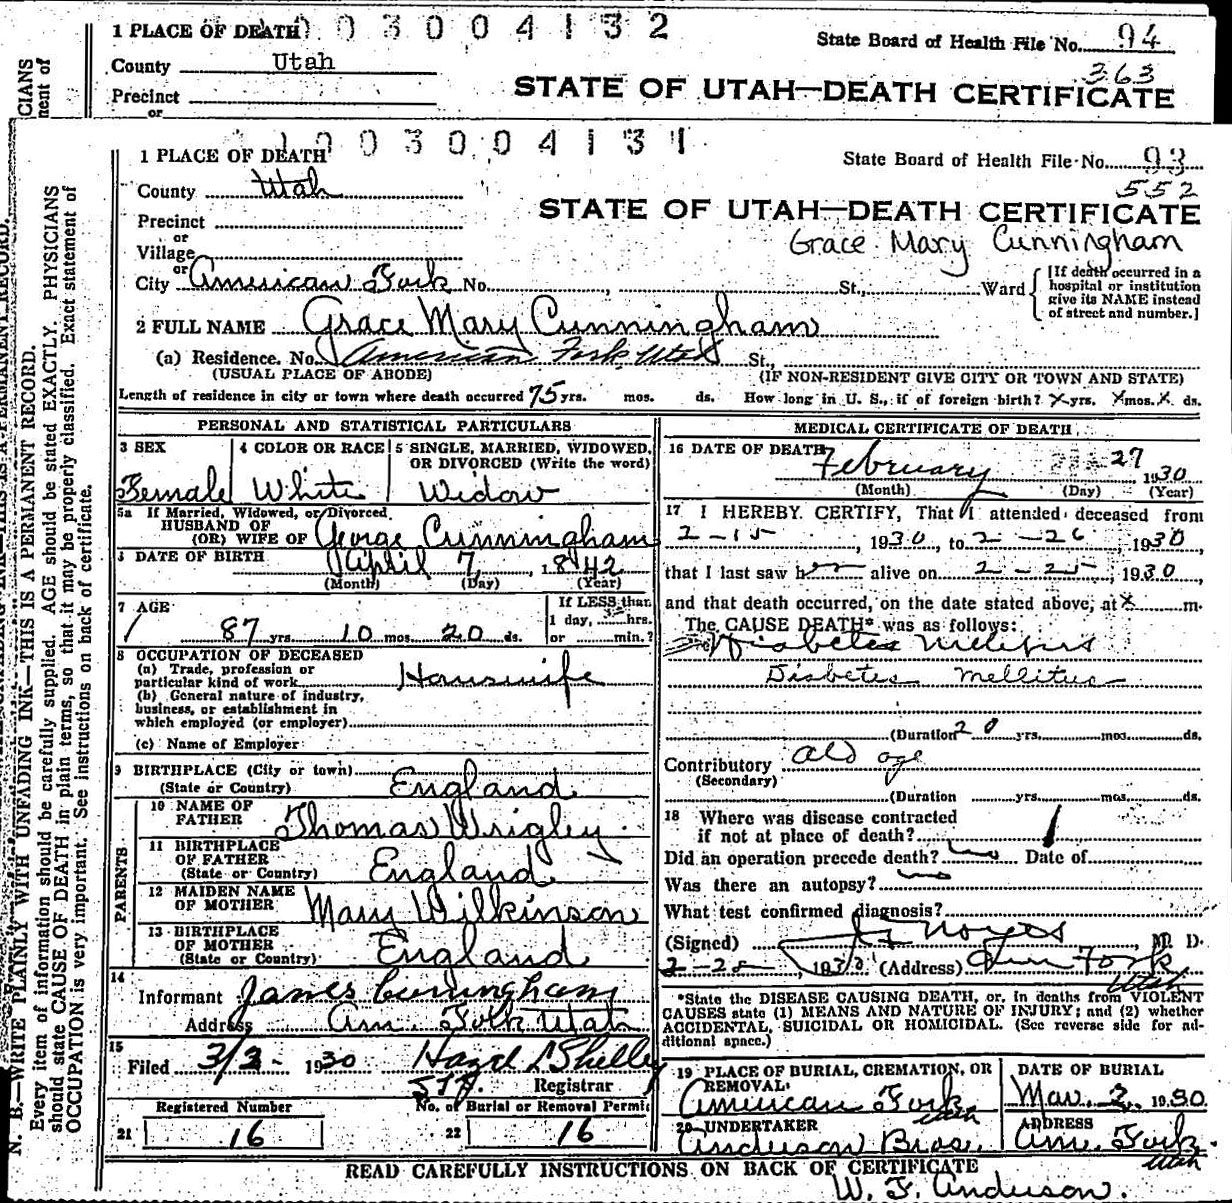 1 PLACE OF DEATH 003004132
State Board of Health File No. 94
County Utah
363
Precinct
STATE OF UTAH—DEATH CERTIFICATE
or
1003004131
1 PLACE OF DEATH
State Board of Health File No. 93
County Utah
552
STATE OF UTAH—DEATH CERTIFICATE
Precinct
or
Village
Grace Mary Cunningham
or
City American Fork No. , St., Ward
[If death occurred in a
hospital or institution
give its NAME instead
of street and number.]
2 FULL NAME Grace Mary Cunningham
(a) Residence. No. American Fork Utah St.,
(USUAL PLACE OF ABODE) (IF NON-RESIDENT GIVE CITY OR TOWN AND STATE)
Length of residence in city or town where death occurred 75 yrs. mos. ds. How long in U. S., if of foreign birth? X yrs. X mos. X ds.
PERSONAL AND STATISTICAL PARTICULARS
3 SEX
Female
4 COLOR OR RACE
White
5 SINGLE, MARRIED, WIDOWED,
OR DIVORCED (Write the word)
Widow
5a If Married, Widowed, or Divorced
HUSBAND OF
(OR) WIFE OF George Cunningham
DATE OF BIRTH April 7, 1842
(Month) (Day) (Year)
7 AGE
87 yrs. 10 mos. 20 ds.
If LESS than
1 day, hrs.
or min.?
8 OCCUPATION OF DECEASED
(a) Trade, profession or
particular kind of work Housewife
(b) General nature of industry,
business, or establishment in
which employed (or employer)
(c) Name of Employer
9 BIRTHPLACE (City or town)
(State or Country) England
PARENTS
10 NAME OF
FATHER Thomas Wrigley
11 BIRTHPLACE
OF FATHER
(State or Country) England
12 MAIDEN NAME
OF MOTHER Mary Wilkinson
13 BIRTHPLACE
OF MOTHER
(State or Country) England
14
Informant James Cunningham
Address Am. Fork Utah
15
Filed 3/3- 1930 Hazel L Shelley
Registrar
Registered Number
21 16
No. of Burial or Removal Permit
22 16
MEDICAL CERTIFICATE OF DEATH
16 DATE OF DEATH February 27 1930
(Month) (Day) (Year)
17 I HEREBY CERTIFY, That I attended deceased from
2-15, 1930, to 2-26, 1930
that I last saw her alive on 2-25, 1930,
and that death occurred, on the date stated above, at X m.
The CAUSE DEATH* was as follows:
Diabetes Mellitus
Diabetes Mellitus
(Duration 20 yrs. mos. ds.
Contributory Old age
(Secondary)
(Duration yrs. mos. ds.
18 Where was disease contracted
if not at place of death?
Did an operation precede death? no Date of
Was there an autopsy? no
What test confirmed diagnosis?
(Signed) Noyes, M. D.
2-28, 1930 (Address) Am Fork
Utah
*State the DISEASE CAUSING DEATH, or, in deaths from VIOLENT
CAUSES state (1) MEANS AND NATURE OF INJURY; and (2) whether
ACCIDENTAL, SUICIDAL OR HOMICIDAL. (See reverse side for ad-
ditional space.)
19 PLACE OF BURIAL, CREMATION, OR
REMOVAL
American Fork
Utah
DATE OF BURIAL
Mar. 2, 1930
20 UNDERTAKER
Anderson Bros.
ADDRESS
Am. Fork
Utah
READ CAREFULLY INSTRUCTIONS ON BACK OF CERTIFICATE
W. F. Anderson.
N. B.—WRITE PLAINLY WITH UNFADING INK—THIS IS A PERMANENT RECORD.
Every item of information should be carefully supplied. AGE should be stated EXACTLY. PHYSICIANS
should state CAUSE OF DEATH in plain terms, so that it may be properly classified. Exact statement of
OCCUPATION is very important. See instructions on back of certificate.
CIANS
ment of